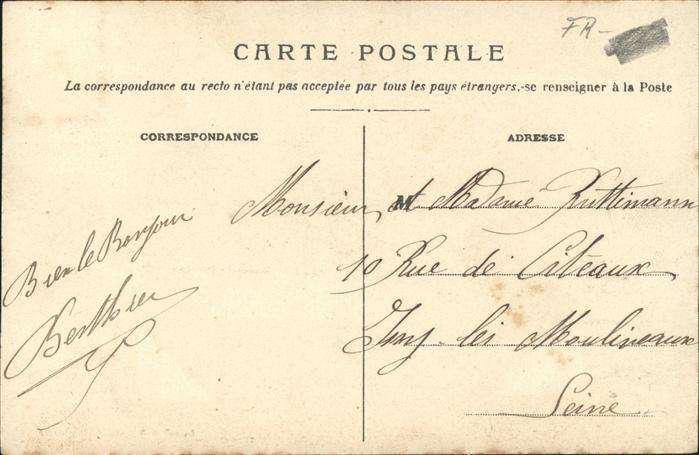 FR-
CARTE POSTALE
La correspondance au recto n'étant pas acceptée par tous les pays étrangers,-se renseigner à la Poste
CORRESPONDANCE
ADRESSE
Bien le Bonjour
Berthier
Monsieur M et Madame Ruttimann
10 Rue de Citeaux
Issy les Moulineaux
Seine